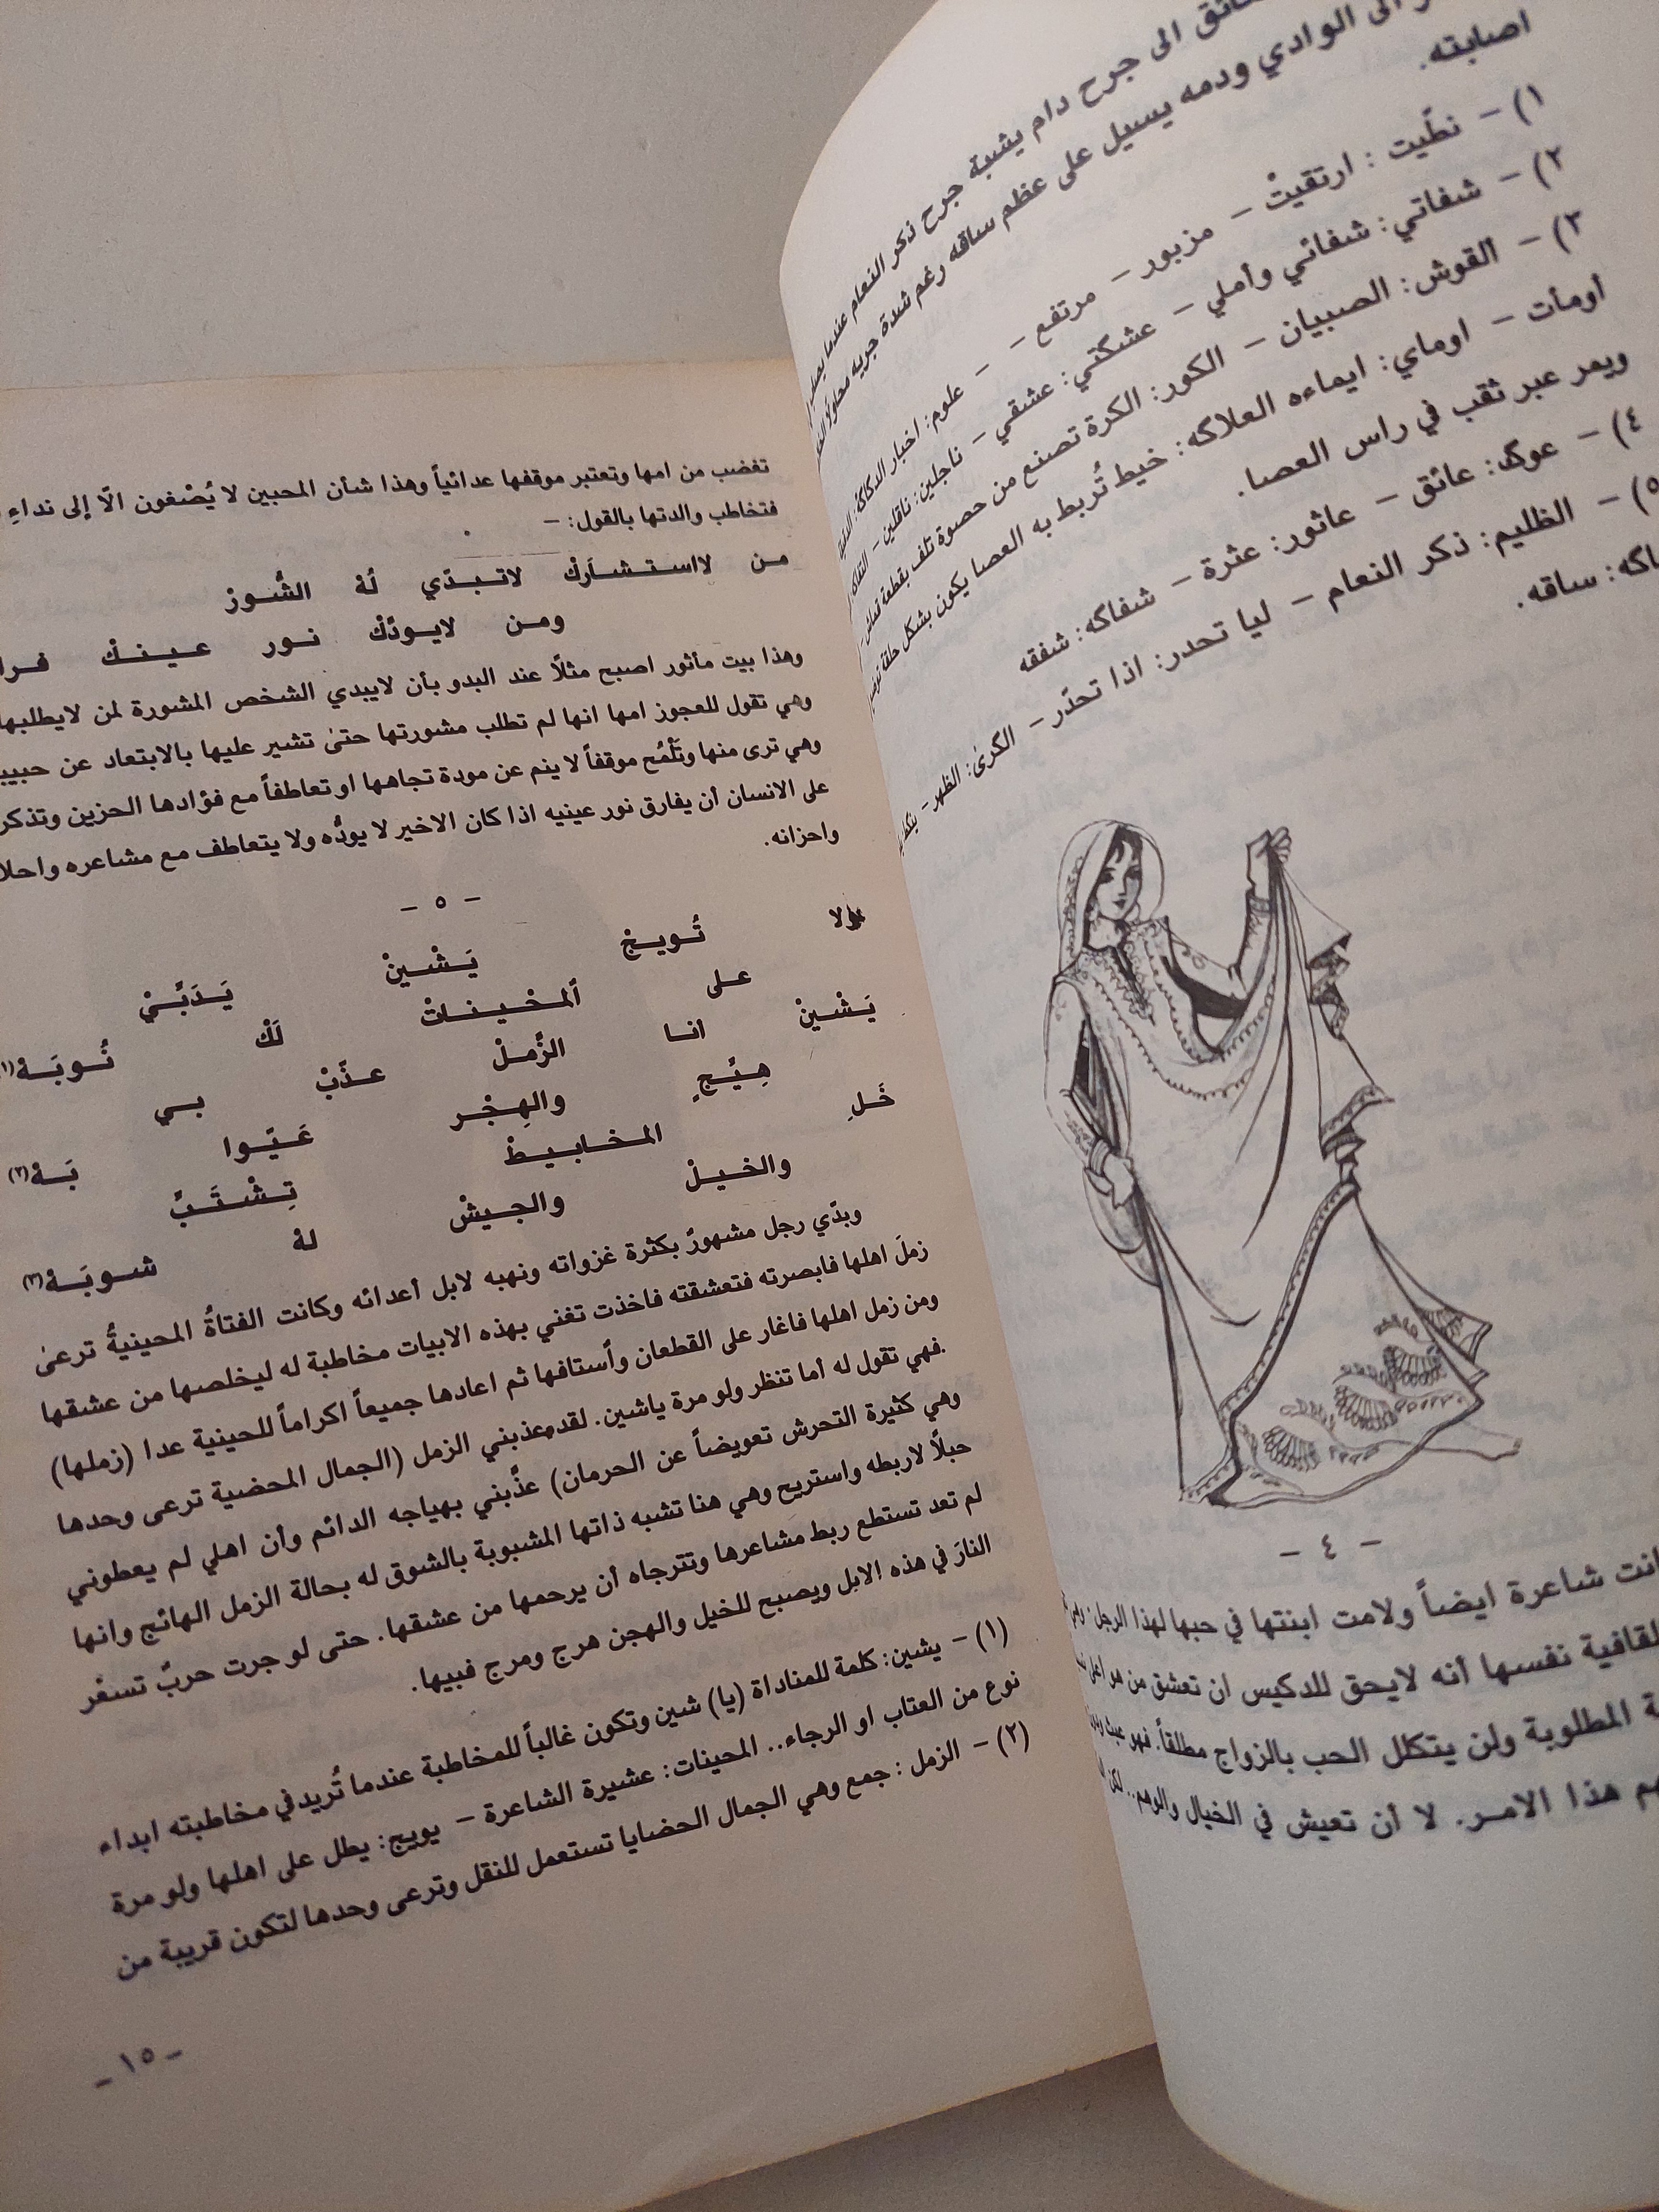 الى جرح دام يشبة جرح ذكر النعام عندما
الى الوادي ودمه يسيل على عظم ساقه رغم شدة جريه
اصابته.
١) – نطّيت : ارتقيتْ – مزبور – مرتفع – – علوم: اخبار
٢) – شفاتي: شفائي وأملي – عشگتي: عشقي – ناجلين: ناقلين –
٣) – القوش: الصبيان – الكور: الكرة تصنع من حصوة تلف بقطعة
أومأت – اوماي: ايماءه العلاگه: خيط تُربط به العصا يكون بشكل حلقة
ويمر عبر ثقب في راس العصا.
٤) – عوگ: عائق – عاثور: عثرة – شفاگه: شفقه
٥) – الظليم: ذكر النعام – ليا تحدر: اذا تحدّر – الگرىٰ: الظهر –
ساقه.
– ٤ –
شاعرة ايضاً ولامت ابنتها في حبها لهذا الرجل
نفسها أنه لايحق للدكيس ان تعشق من هو
المطلوبة ولن يتكلل الحب بالزواج مطلقاً. فهو
هذا الامر. لا أن تعيش في الخيال والوهم.. لكن
تغضب من امها وتعتبر موقفها عدائياً وهذا شأن المحبين لا يُصْغون الّا إلى نداءِ
فتخاطب والدتها بالقول: –
من لااستشاَركْ لاتبدّي لهْ الشُوز
ومن لايودّكْ نور عينكْ
وهذا بيت مأثور اصبح مثلًا عند البدو بأن لايبدي الشخص المشورة لمن لايطلبها
وهي تقول للعجوز امها انها لم تطلب مشورتها حتىٰ تشير عليها بالابتعاد عن
وهي ترى منها وتَلْمُح موقفاً لا ينم عن مودة تجاهها او تعاطفاً مع فؤادها الحزين وتذكر
على الانسان أن يفارق نور عينيه اذا كان الاخير لا يودُّه ولا يتعاطف مع مشاعره
واحزانه.
– ٥ –
تُويجْ يَشْينْ يَدَبَّيْ
على ألمحْيناتْ لَكْ نُوبَهْ(١)
يَشْينْ انا الزُملْ عذّبْ بي
هِيَّجٍ والهِجْر عَيّوا بَهْ(٢)
خَلِ المخابيطْ تِشْتَبْ
والخيلْ والجيشْ لهْ شوبَهْ(٣)
وبدّي رجل مشهورٌ بكثرة غزواته ونهبه لابل أعدائه وكانت الفتاةُ المحينيةُ ترعىٰ
زملَ اهلها فابصرته فتعشقته فاخذت تغني بهذه الابيات مخاطبة له ليخلصها من عشقها
ومن زمل اهلها فاغار على القطعان وأستافها ثم اعادها جميعاً اكراماً للحينية عدا (زملها)
فهي تقول له أما تنظر ولو مرة ياشين. لقد عذبني الزمل (الجمال المحضية ترعى وحدها
وهي كثيرة التحرش تعويضاً عن الحرمان) عذَّبني بهياجه الدائم وأن اهلي لم يعطوني
حبلًا لاربطه واستريح وهي هنا تشبه ذاتها المشبوبة بالشوق له بحالة الزمل الهائج وانها
لم تعد تستطع ربط مشاعرها وتترجاه أن يرحمها من عشقها. حتى لو جرت حربٌ تسعْر
النارَ في هذه الابل ويصبح للخيل والهجن هرج ومرج فبيها.
(١) – يشين: كلمة للمناداة (يا) شين وتكون غالباً للمخاطبة عندما تُريد في مخاطبته ابداء
نوع من العتاب او الرجاء.. المحينات: عشيرة الشاعرة – يويج: يطل على اهلها ولو مرة
(٢) – الزمل : جمع وهي الجمال الحضايا تستعمل للنقل وترعى وحدها لتكون قريبة من
– ١٥ –